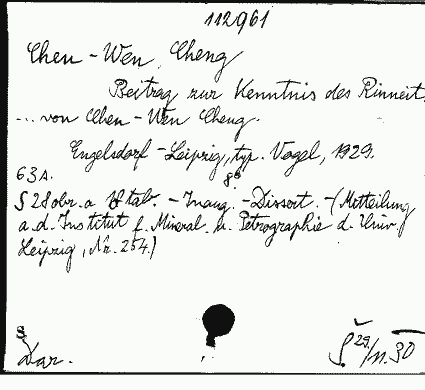 112961
Chen-Wen, Cheng
Beitrag zur Kenntnis des Rinneit,
... von Chen-Wen Cheng.
Engelsdorf-Leipzig, typ. Vogel, 1929.
63 s. 8º
28 obr. a tab. - Inaug. - Dissert. - (Mitteilung
a. d. Institut f. Mineral. u. Petrographie d. Univ.
Leipzig, Nr. 254.)
S
Dar.
29/11.30